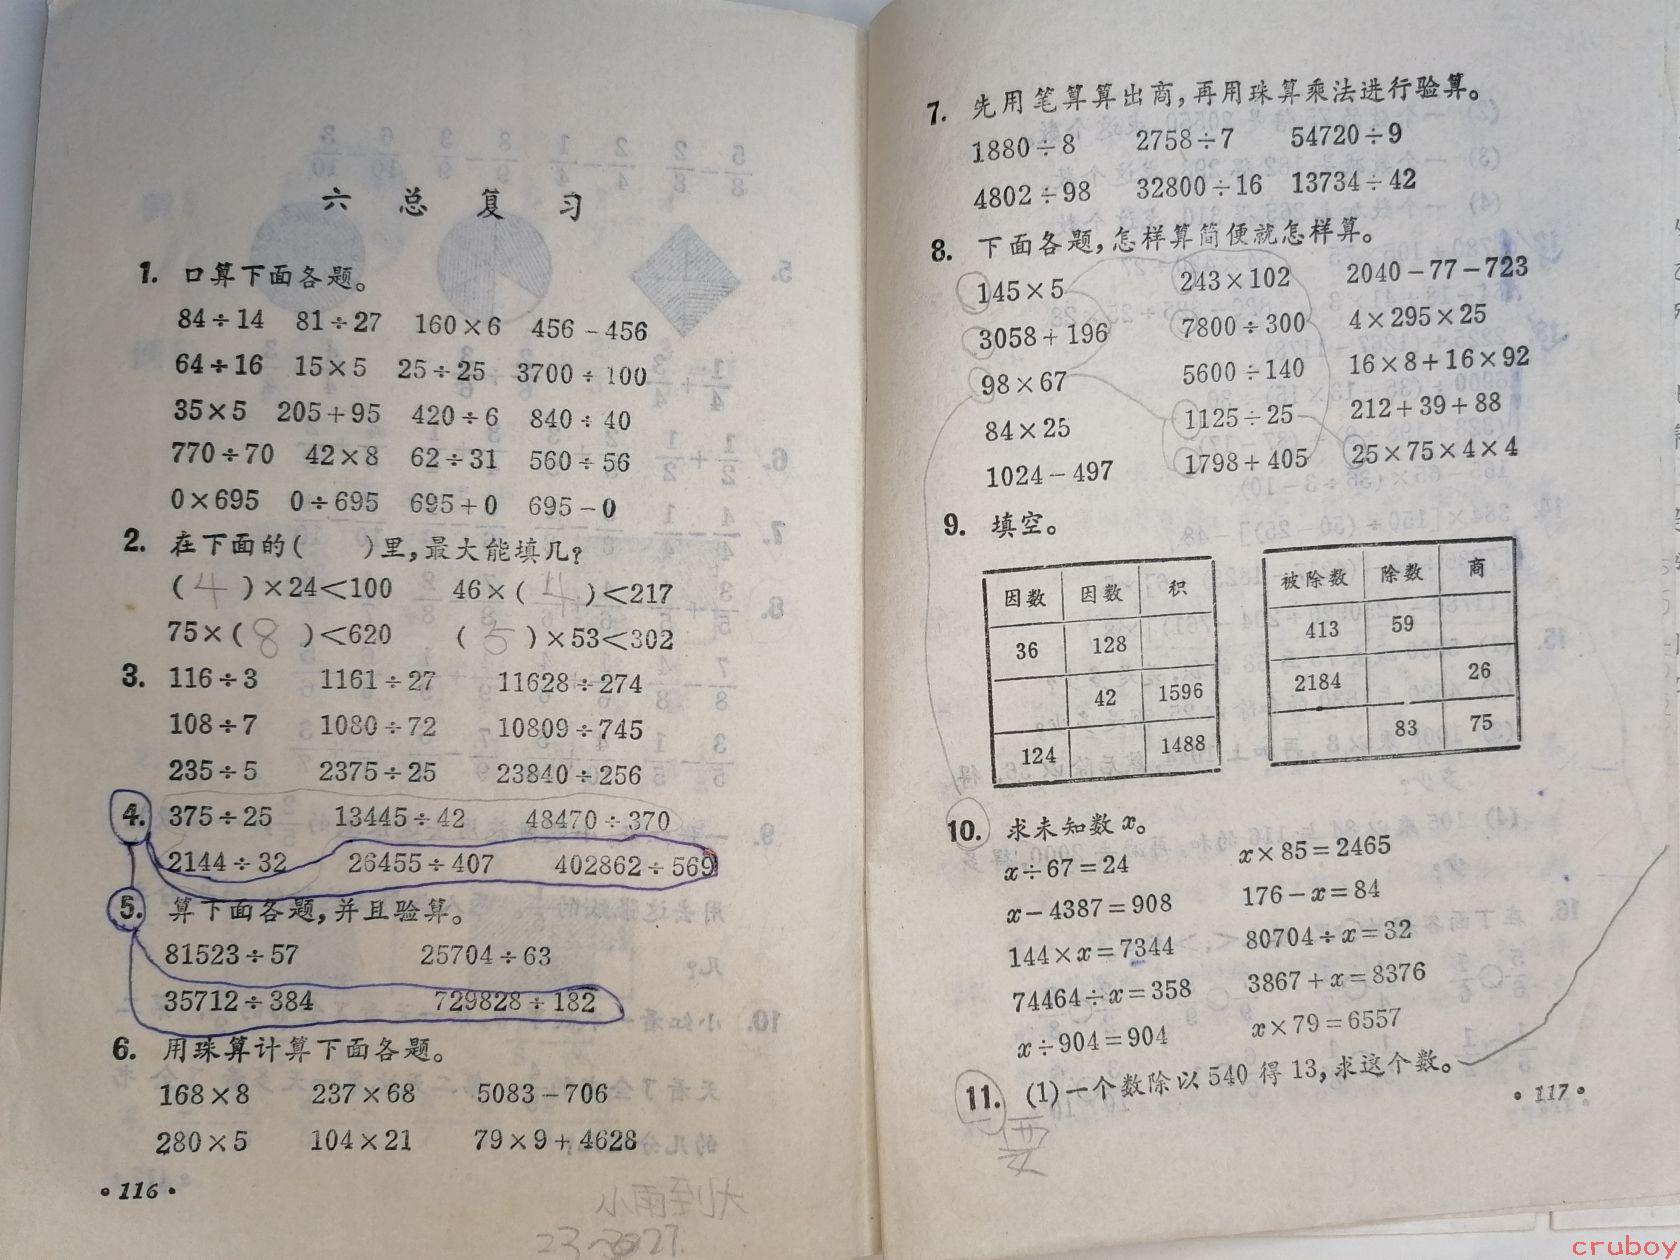 六 总 复 习
1. 口算下面各题。
84÷14 81÷27 160×6 456-456
64÷16 15×5 25÷25 3700÷100
35×5 205+95 420÷6 840÷40
770÷70 42×8 62÷31 560÷56
0×695 0÷695 695+0 695-0
2. 在下面的( )里,最大能填几?
(4)×24<100 46×(4)<217
75×(8)<620 (5)×53<302
3. 116÷3 1161÷27 11628÷274
108÷7 1080÷72 10809÷745
235÷5 2375÷25 23840÷256
4. 375÷25 13445÷42 48470÷370
2144÷32 26455÷407 402862÷569
5. 算下面各题,并且验算。
81523÷57 25704÷63
35712÷384 729828÷182
6. 用珠算计算下面各题。
168×8 237×68 5083-706
280×5 104×21 79×9+4628
·116·
7. 先用笔算算出商,再用珠算乘法进行验算。
1880÷8 2758÷7 54720÷9
4802÷98 32800÷16 13734÷42
8. 下面各题,怎样算简便就怎样算。
145×5 243×102 2040-77-723
3058+196 7800÷300 4×295×25
98×67 5600÷140 16×8+16×92
84×25 1125÷25 212+39+88
1024-497 1798+405 25×75×4×4
9. 填空。
因数 因数 积
36 128
42 1596
124 1488
被除数 除数 商
413 59
2184 26
83 75
10. 求未知数x。
x÷67=24 x×85=2465
x-4387=908 176-x=84
144×x=7344 80704÷x=32
74464÷x=358 3867+x=8376
x÷904=904 x×79=6557
11. (1)一个数除以540得13,求这个数。
·117·
cruboy